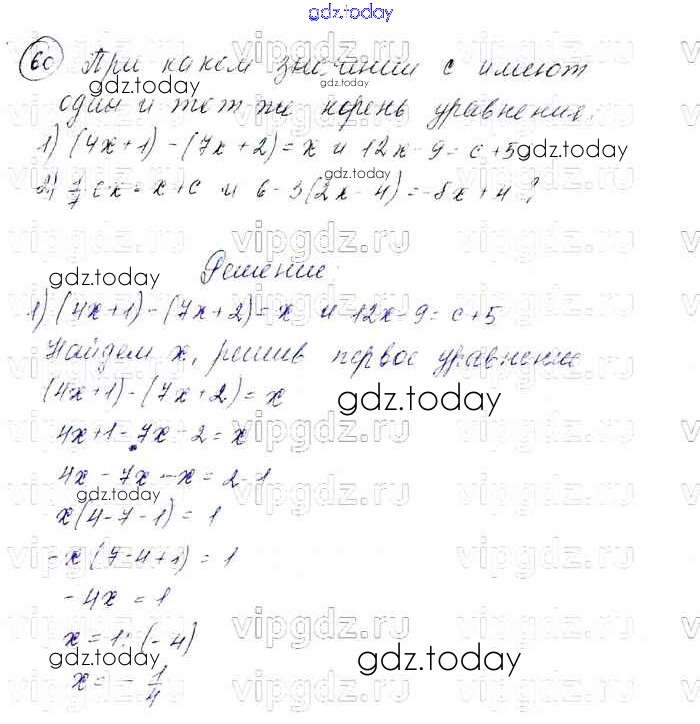 gdz.today
60 При каком значении c имеют
один и тот же корень уравнения:
1) (4x+1)-(7x+2)=x и 12x-9=c+5
gdz.today
2) 1/7 cx=x+c и 6-3(2x-4)=-8x+4?
Решение:
gdz.today
1) (4x+1)-(7x+2)=x и 12x-9=c+5
Найдем x, решив первое уравнение
(4x+1)-(7x+2)=x
gdz.today
4x+1-7x-2=x
4x-7x-x=2-1
gdz.today
x(4-7-1)=1
-x(7-4+1)=1
-4x=1
x=1:(-4)
gdz.today
gdz.today
x=-1/4